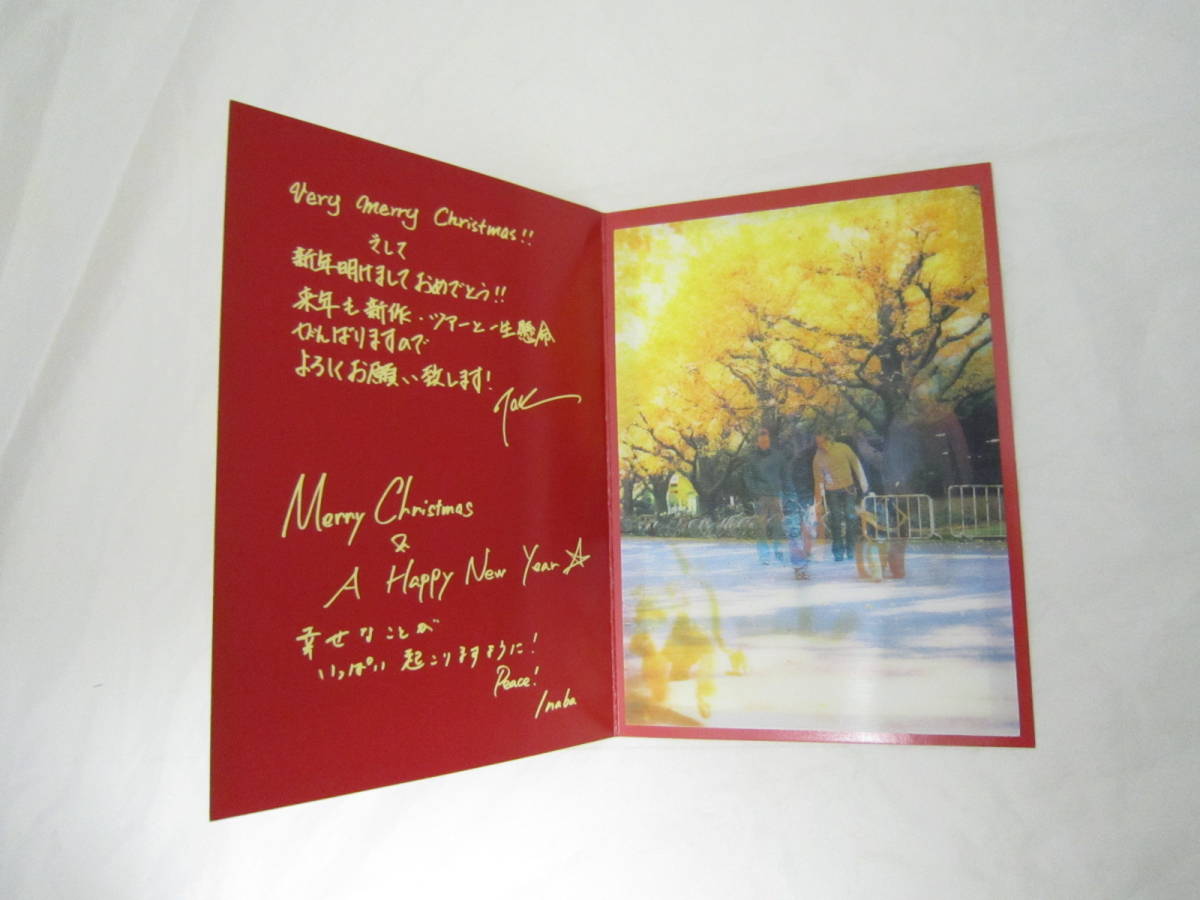 Very merry Christmas!!
そして
新年明けましておめでとう!!
来年も新作・ツアーと一生懸命
がんばりますので
よろしくお願い致します!
Tak
Merry Christmas
&
A Happy New Year☆
幸せなことが
いっぱい起こりますように!
Peace!
Inaba